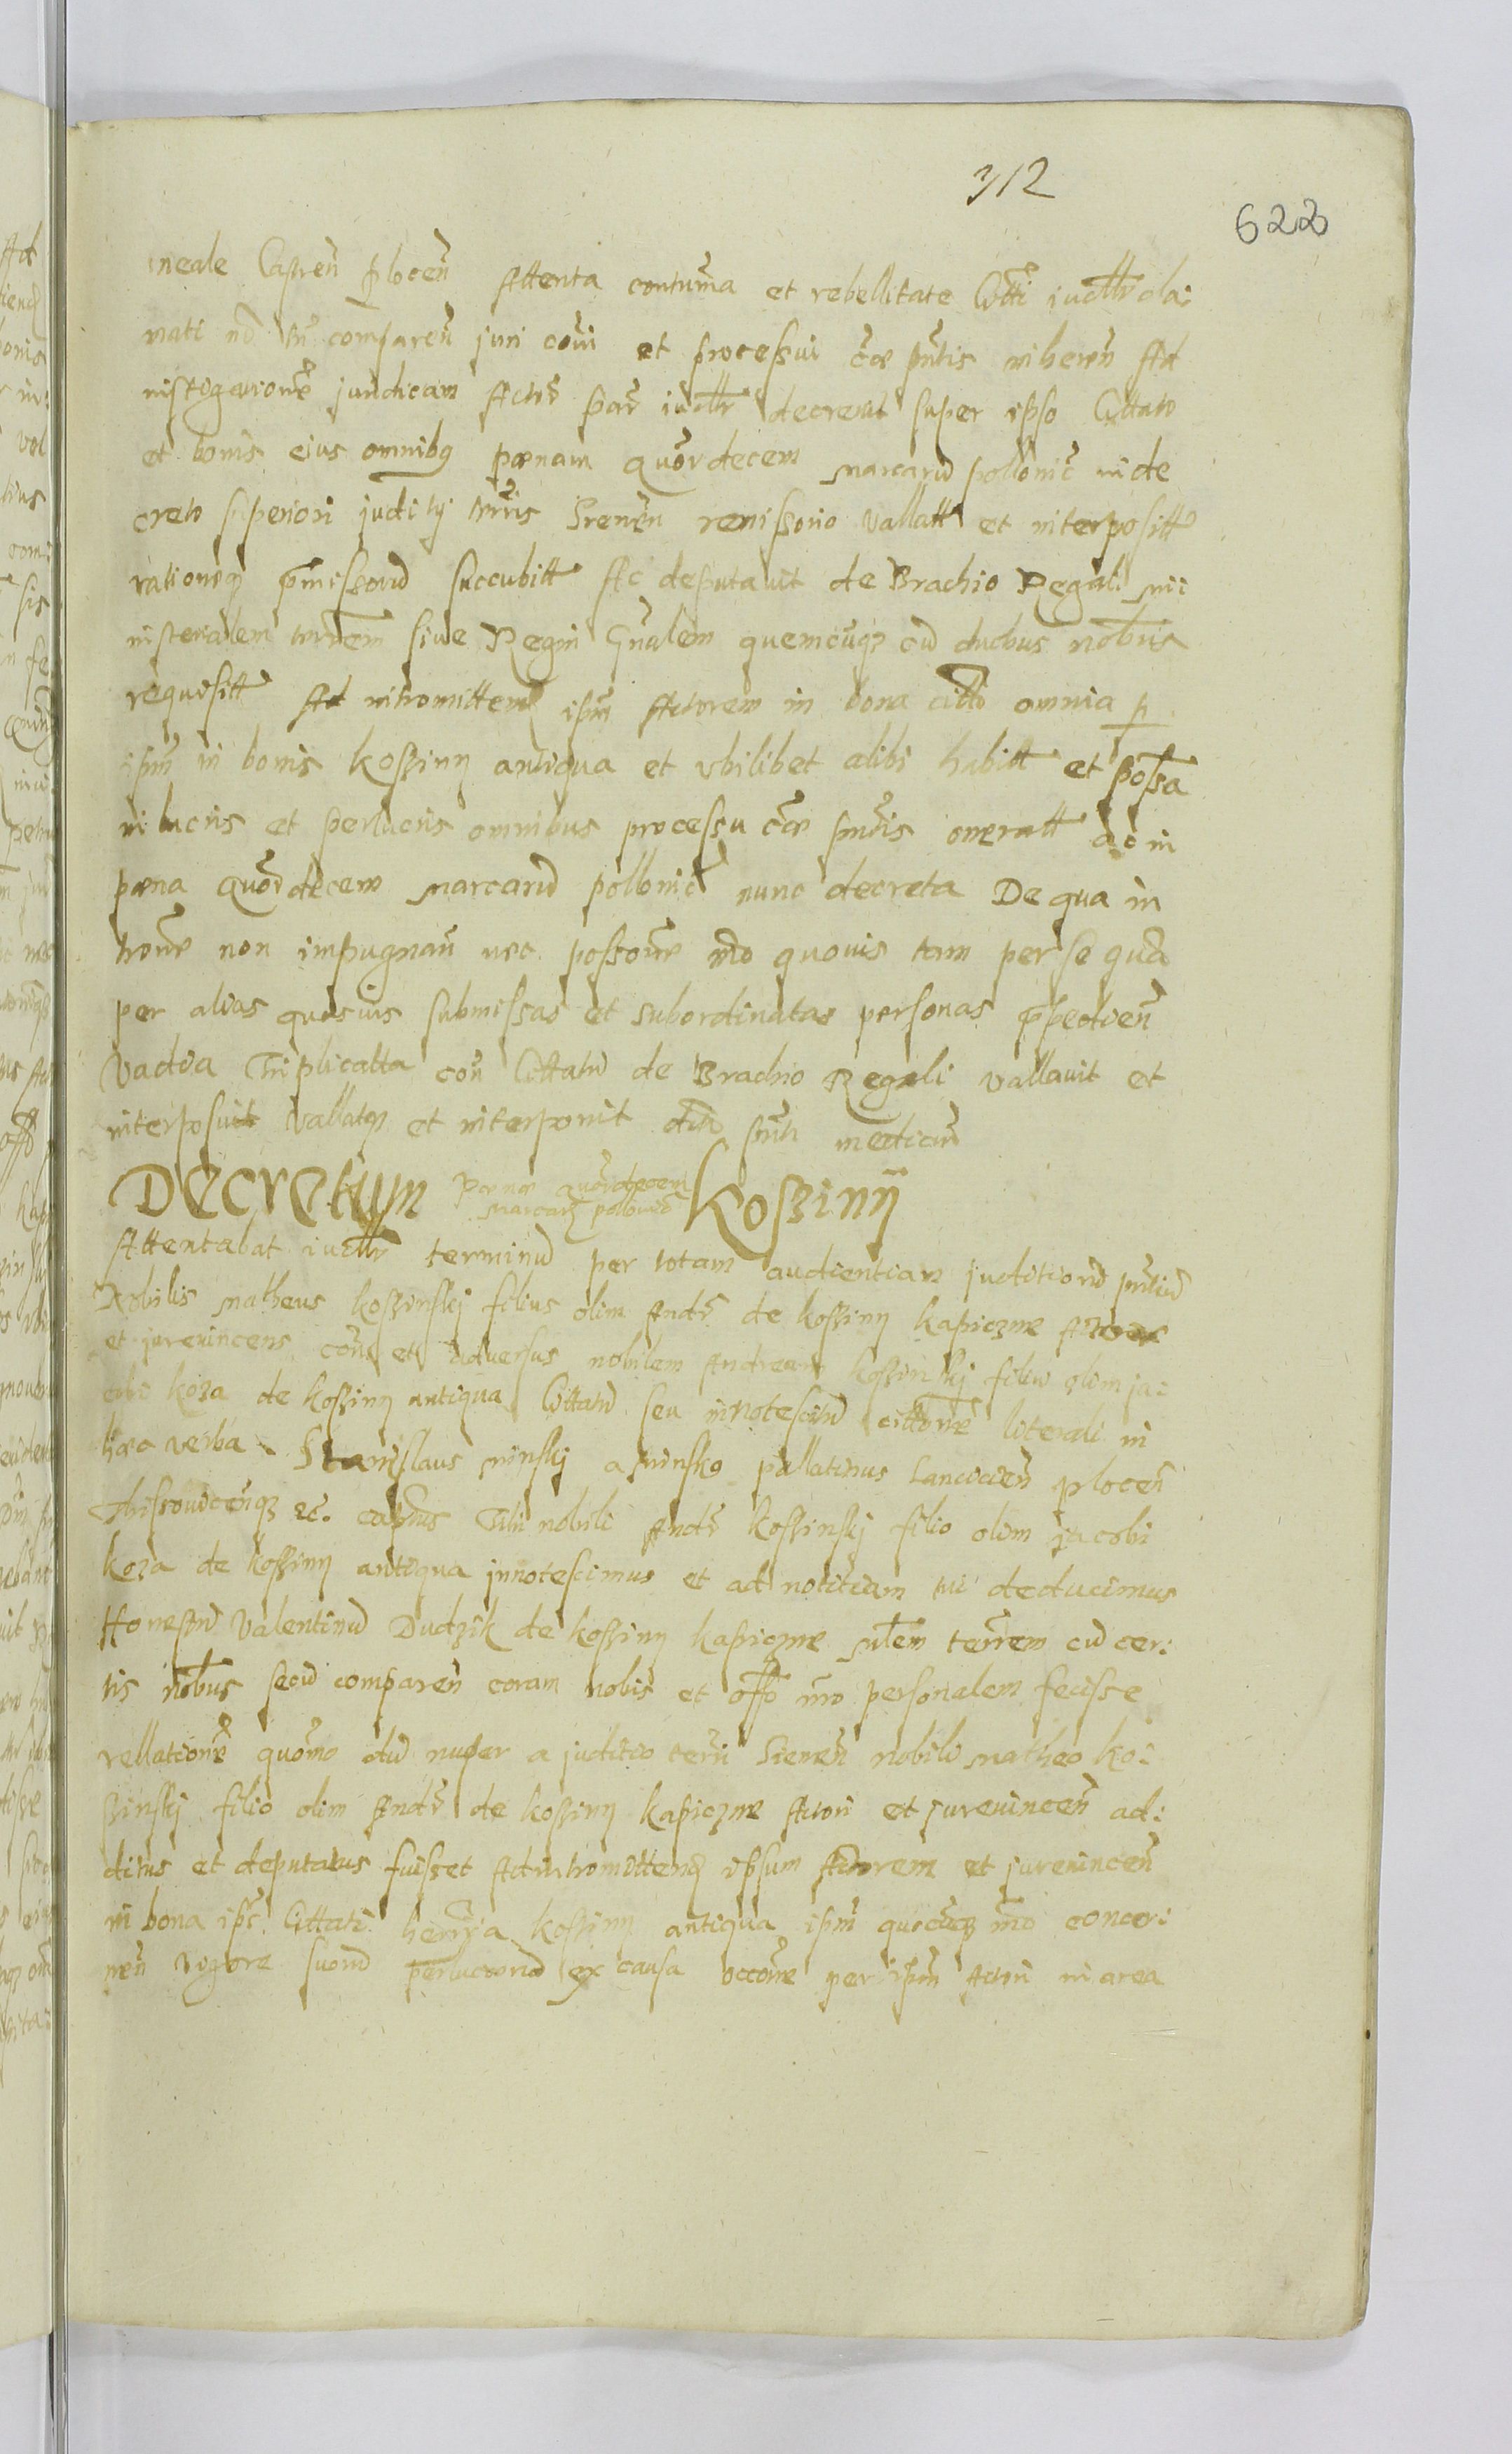 312
622
ineale Castren̄ plocen̄ Attenta contuma et rebellitate Citti iudllr cla:
mati nō tn̄ comparen̄ juri coi et processui cæ pn̄tis inheren̄ Ad
instigationē juridicam Actor̄ iudllr decrevit super ipso Cittato
et bonis eius omnibq pœnam quordecem marcarū pollonic in de
creto superiori juditij trris Srenen̄ remissorio vallatt et interposit
rationeq p̄missorū succubitt Ac deputavit de Brachio Regali mi:
nisterialem trrem siue Regni Gnalem quemcuqȝ cū duobus nobus
requisitt Ad intromitten ipm̄ Actorem in bona citti omnia p
ipm̄ in bonis kossiny antiqua et vbilibet alibi habitt et possa
in lucris et perlucris omnibus processu cæ pn̄tis oneratt ac in
pœna quordecem marcarū pollonic nunc decreta De qua in
trone non impugnan̄ nec possone mdo quouis tam per se quā
per alias quasuis submissas et subordinatas personas p̄pedien̄
Vadia Triplicatta con Cittatū de Brachio Regali vallauit et
interposuit vallatqȝ et interponit dto pn̄ti median̄
Decretum Pœnæ quordecem marcarȝ pollonic Kossinÿ
Attentabat iudllr terminū per totam audientiam juditiorū pn̄tiū
Nobilis matheus kossinskj filius olim Andr̄ de kossiny kapiczne Actor
et jureuincens con̄ et aduersus nobilem Andream kossinskj filiū olim ja:
cobi koza de kossiny antiqua Cittatū seu innotescitū cittone literali in
hæc verba Stanislaus minskj a minsko pallatinus Lancicien̄ plocen̄
cenqȝ etc. capnus Tibi nobili Andr̄ kossinskj filio olim jacobi
koza de kossiny antiqua jnnotescimus et ad notitiam tui deducimus
Honestū Valentinū Dudzik de kossiny kapiczne mlem terrem cū cer:
tis nobus secū comparen̄ coram nobis et offo nr̄o personalem fecisse
rellationē quomo dū nuper a juditio terri Srenen̄ nobili matheo ko:
ssinskj filio olim Andr̄ de kossiny kapiczne Actori et jureuincen̄ ad:
ditus et deputatus fuisset Ad intromitten ipsum Actorem et jureuincen̄
in bona ips Cittati kossiny antiqua ipm̄ quocuqȝ mdo concer:
nen̄ vigore suorū perlucrorū ex causa occone per ipm̄ Actori in area